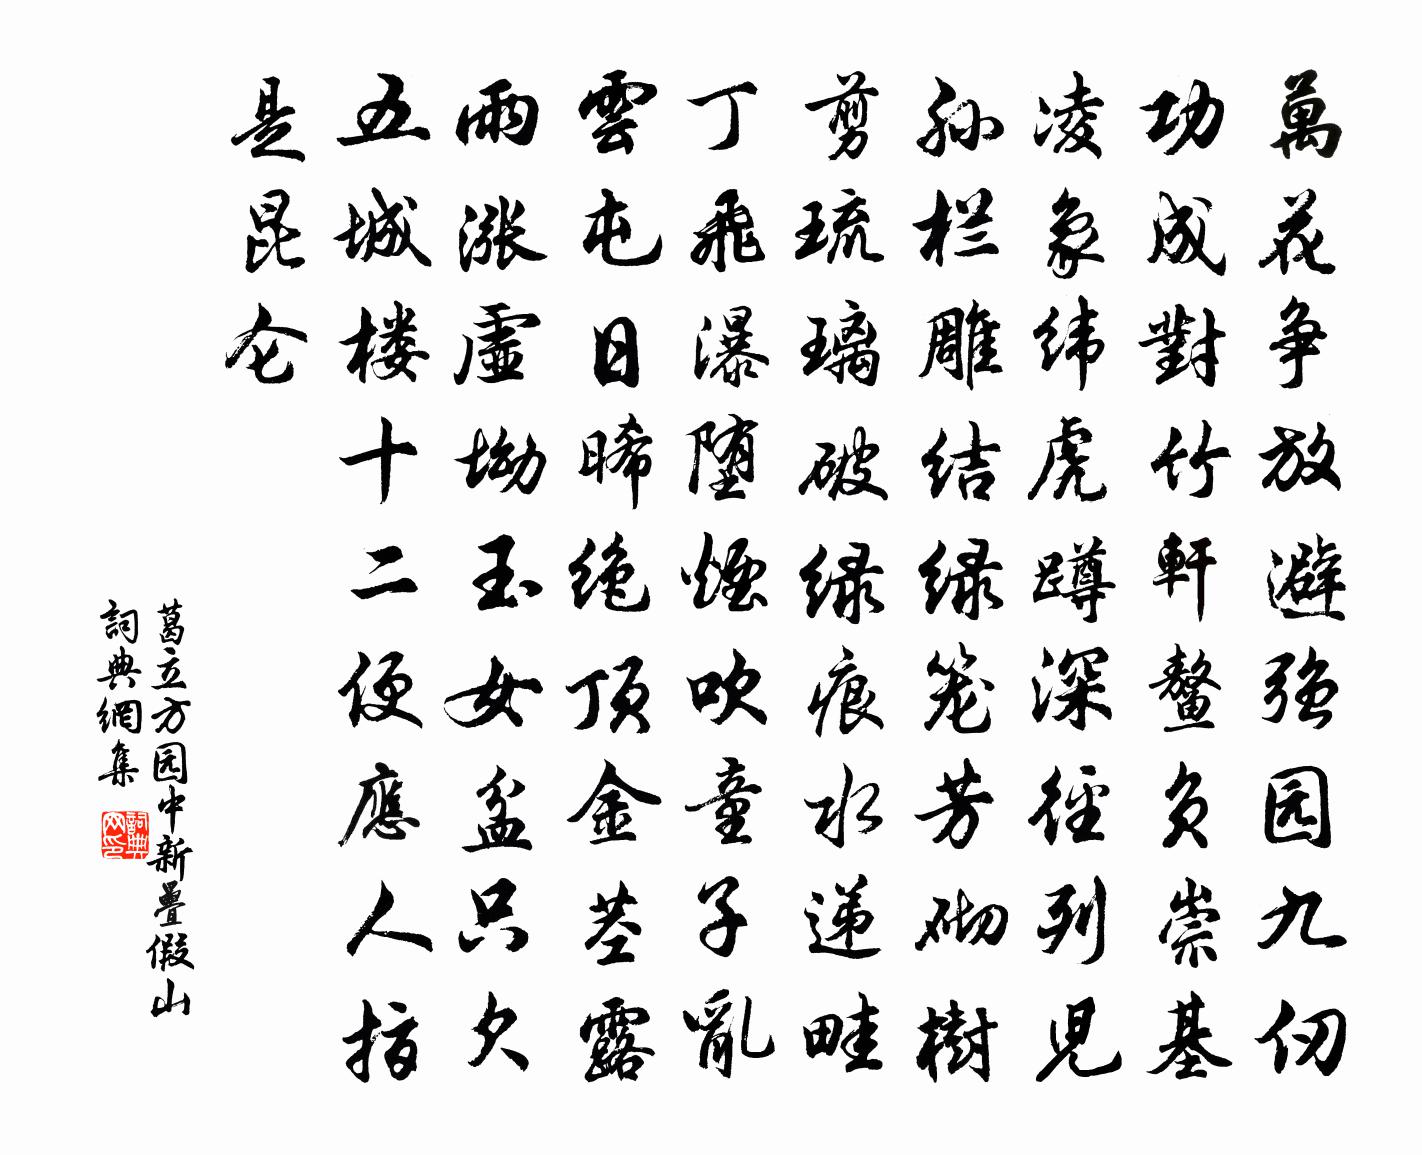 萬花争放避强园九仞
功成對竹軒鳌負崇基
凌象纬虎蹲深径列児
孙栏雕结绿笼芳砌樹
剪琉璃破绿痕水递畦
丁飛瀑堕烟吹童子亂
雲屯日晞绝顶金茎露
雨涨虚坳玉女盆只欠
五城楼十二便應人指
是昆仑
葛立方园中新疊假山
詞典網集
詞典
网印